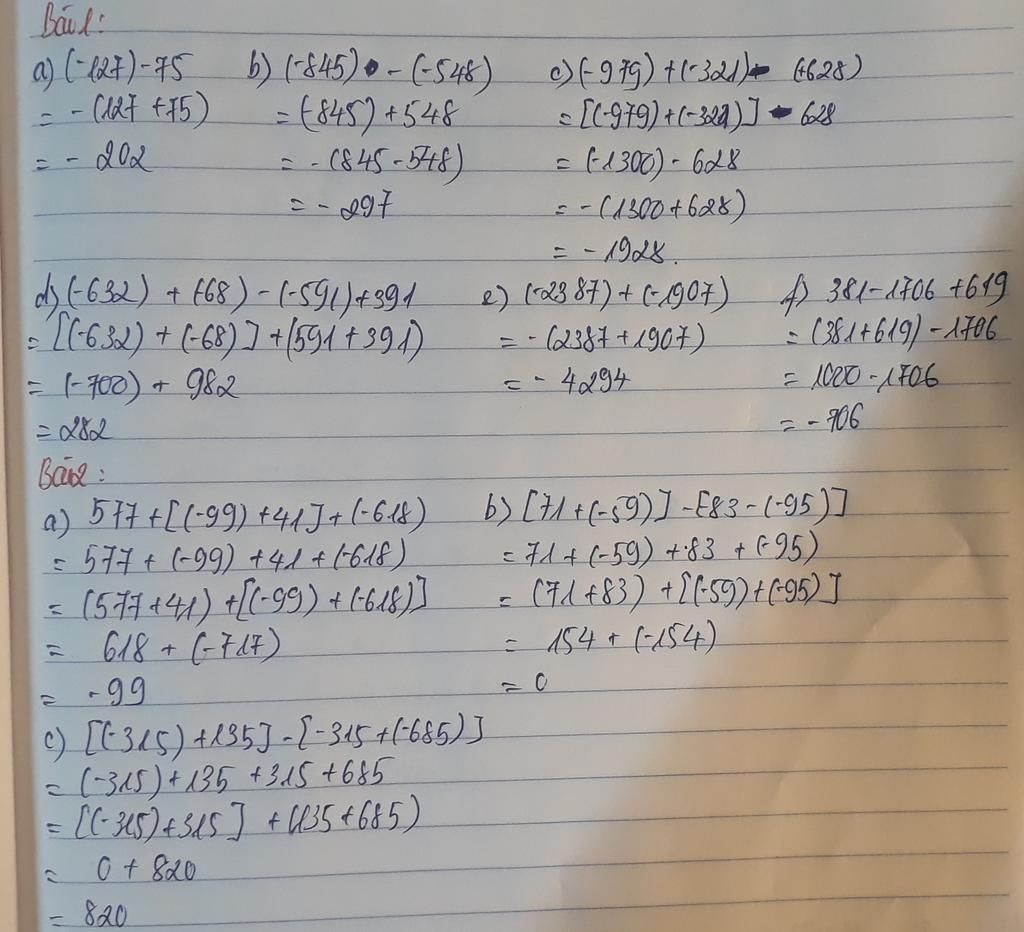 Bài 1:
a) (-127) - 75 b) (-845) - (-548) c) (-979) + (-321) - (+628)
= -(127 + 75) = (-845) + 548 = [(-979) + (-321)] - 628
= - 202 = -(845 - 548) = (-1300) - 628
= - 297 = -(1300 + 628)
= - 1928.
d) (-632) + (-68) - (-591) + 391 e) (-2387) + (-1907) f) 381 - 1706 + 619
= [(-632) + (-68)] + (591 + 391) = -(2387 + 1907) = (381 + 619) - 1706
= (-700) + 982 = - 4294 = 1000 - 1706
= 282 = - 706
Bài 2:
a) 577 + [(-99) + 41] + (-618) b) [71 + (-59)] - [-83 - (-95)]
= 577 + (-99) + 41 + (-618) = 71 + (-59) + 83 + (-95)
= (577 + 41) + [(-99) + (-618)] = (71 + 83) + [(-59) + (-95)]
= 618 + (-717) = 154 + (-154)
= -99 = 0
c) [(-315) + 135] - [-315 + (-685)]
= (-315) + 135 + 315 + 685
= [(-315) + 315] + (135 + 685)
= 0 + 820
= 820